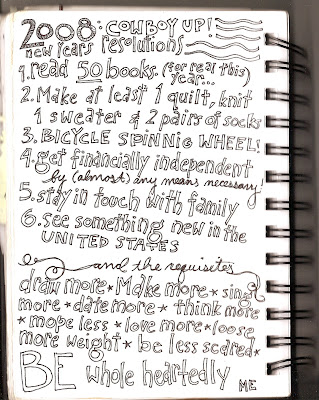 2008: COWBOY UP!
new years resolutions
1. read 50 books. (for real this)
year...
2. Make at least 1 quilt, knit
1 sweater & 2 pairs of socks
3. BICYCLE SPINNIG WHEEL!
4. get financially independent
by (almost) any means necessary!
5. stay in touch with family
6. see something new in the
UNITED STATES
and the requisites
draw more * Make more * sing
more * date more * think more
* mope less * love more * loose
more weight * be less scared *
BE whole heartedly ME